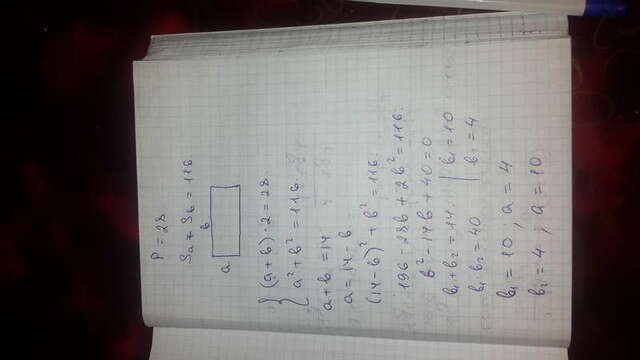 P = 28
Sa + Sb = 116
b
a
{ (a+b)·2 = 28
a² + b² = 116
a + b = 14
a = 14 - b
(14-b)² + b² = 116
196 - 28b + 2b² = 116
b² - 14b + 40 = 0
b₁ + b₂ = 14 | b₁ = 10
b₁ · b₂ = 40 | b₂ = 4
b₁ = 10 ; a = 4
b₂ = 4 ; a = 10